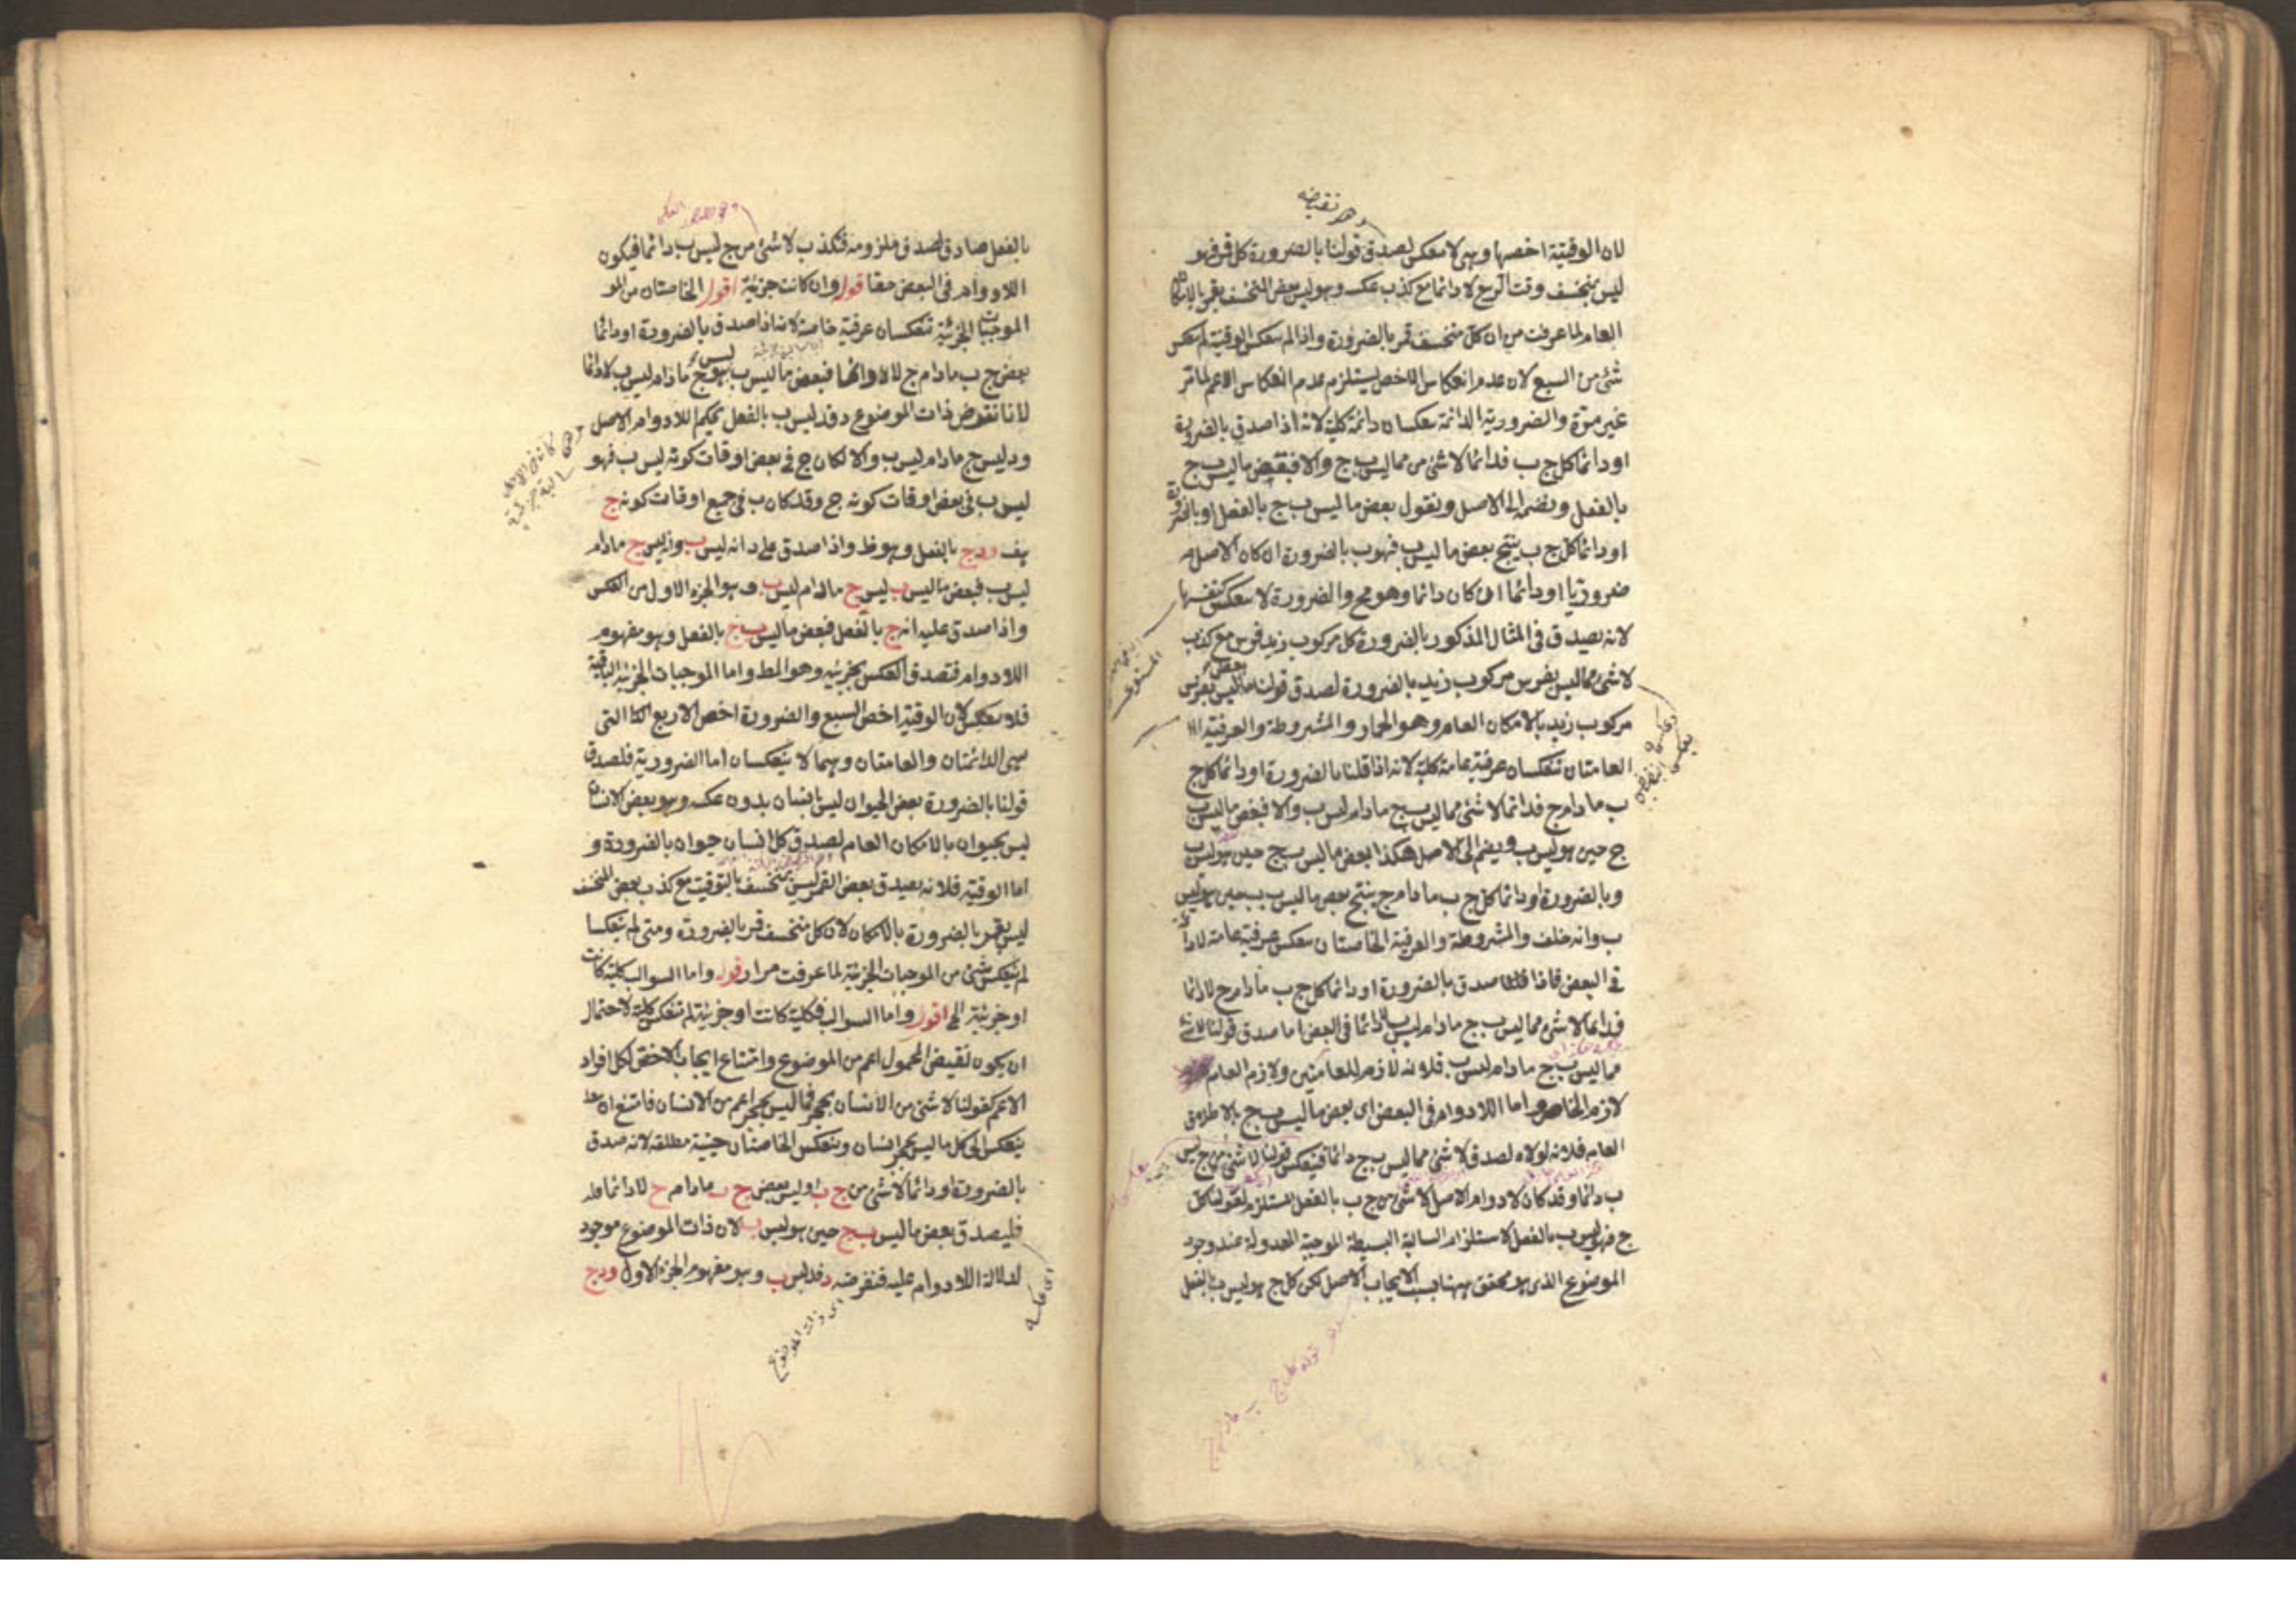 وهو نقيضه
لان الوقتية اخصها وهى لا تنعكس لصدق قولنا بالضرورة كل قمر فهو
ليس بمنخسف وقت التربيع لا دائما مع كذب عكسه وهو ليس بعض المنخسف بقمر بالامكان
العام لما عرفت من ان كل منخسف قمر بالضرورة واذا لم تنعكس الوقتية لم تنعكس
شئ من السبع لان عدم انعكاس الاخص يستلزم عدم انعكاس الاعم لما مر
غير مرة والضرورية الدائمة تنعكسان دائمة كلية لانه اذا صدق بالضرورة
او دائما كل ج ب فدائما لا شئ من مماليس ب ج والا فبعض ماليس ب ج
بالفعل ونضمه الى الاصل ونقول بعض ما ليس ب ج بالفعل وبالضرورة
او دائما كل ج ب ينتج بعض ما ليس ب فهو ب بالضرورة ان كان الاصل
ضروريا او دائما ان كان دائما وهو مح والضرورة لا تنعكس كنفسها
لانه يصدق فى المثال المذكور بالضرورة كل مركوب زيد فرس مع كذب
لا شئ مماليس بفرس مركوب زيد بالضرورة لصدق قولنا بعض ماليس بفرس
مركوب زيد بالامكان العام وهو الحمار والمشروطة والعرفية
العامتان تنعكسان عرفية عامة كلية لانه اذا قلنا بالضرورة او دائما كل ج
ب ما دام ج فدائما لا شئ مماليس ب ج مادام ليس ب والا فبعض ماليس ب
ج حين هو ليس ب ويضم الى الاصل هكذا بعض ما ليس ب ج حين هو ليس ب
وبالضرورة او دائما كل ج ب ما دام ج ينتج بعض ما ليس ب ب حين هو ليس
ب وانه خلف والمشروطة والعرفية الخاصتان تنعكس عرفية عامة لا دائمة
فى البعض فاذا صدق بالضرورة او دائما كل ج ب ما دام ج لا دائما
فدائما لا شئ مماليس ب ج مادام ليس ب لا دائما فى البعض اما صدق قولنا لا شئ
مماليس ب ج ما دام ليس ب فلانه لازم للعامتين ولازم العام
لازم الخاص واما اللا دوام فى البعض اى بعض ما ليس ب ج بالاطلاق
العام فلانه لولاه لصدق لا شئ مماليس ب ج دائما فتنعكس قولنا لا شئ من ج ليس
ب دائما وقد كان لا دوام الاصل لا شئ من ج ب بالفعل المستلزم لقولنا كل
ج فهو ليس ب بالفعل لاستلزام السالبة البسيطة الموجبة المعدولة عند وجود
الموضوع الذى هو محقق ههنا بسبب الايجاب الاصل لكن كل ج هو ليس ب بالفعل
بعكس النقيض
بالفعل صادق لصدق ملزومه فكذب لا شئ من ج ليس ب دائما فيكون
اللا دوام فى البعض حقا قوله وان كانت جزئية اقول الخاصتان من المو
الموجبات الجزئية تنعكسان عرفية خاصة لانه اذا صدق بالضرورة او دائما
بعض ج ب مادام ج لا دائما فبعض ما ليس ب ليس ج ما دام ليس ب لا دائما
لانا نفرض ذات الموضوع د فد ليس ب بالفعل بحكم اللا دوام الاصل
ود ليس ج مادام ليس ب والا لكان ج فى بعض اوقات كونه ليس ب فهو
ليس ب فى بعض اوقات كونه ج وقد كان ب فى جميع اوقات كونه ج
هف ود ج بالفعل وهو ظ واذا صدق على د انه ليس ب وانه ليس ج مادام
ليس ب فبعض ماليس ب ليس ج ما دام ليس ب وهو الجزء الاول من العكس
واذا صدق عليه انه ج بالفعل فبعض ماليس ب ج بالفعل وهو مفهوم
اللا دوام فتصدق العكس بجزئيه وهو المط واما الموجبات الجزئية الباقية
فلا تنعكس لان الوقتية اخص السبع والضرورة اخص الاربع التى
هى الدائمتان والعامتان وهما لا ينعكسان اما الضرورية فلصدق
قولنا بالضرورة بعض الحيوان ليس بانسان بدون عكسه وهو بعض الانسان
ليس بحيوان بالامكان العام لصدق كل انسان حيوان بالضرورة و
اما الوقتية فلانه يصدق بعض القمر ليس بمنخسف بالتوقيت مع كذب بعض المنخسف
ليس بقمر بالضرورة بالامكان لان كل منخسف قمر بالضرورة ومتى لم ينعكسا
لم ينعكس شئ من الموجبات الجزئية لما عرفت مرارا قوله واما السوالب كلية كانت
او جزئية الخ اقول واما السوالب فكلية كانت او جزئية لم تنعكس كلية لاحتمال
ان يكون نقيض المحمول اعم من الموضوع وامتناع ايجاب الاخص لكل افراد
الاعم كقولنا لا شئ من الانسان بحجر فماليس بحجر اعم من الانسان فامتنع ان
ينعكس الى كل ماليس بحجر انسان وينعكس الخاصتان حينية مطلقة لانه صدق
بالضرورة او دائما لا شئ من ج ب او ليس بعض ج ب مادام ج لا دائما
فليصدق بعض ما ليس ب ج حين هو ليس ب لان ذات الموضوع موجود
لدلالة اللا دوام عليه فنفرضه د فد ليس ب وهو مفهوم الجزء الاول ود ج
اى عكسه
اى ذات الموضوع